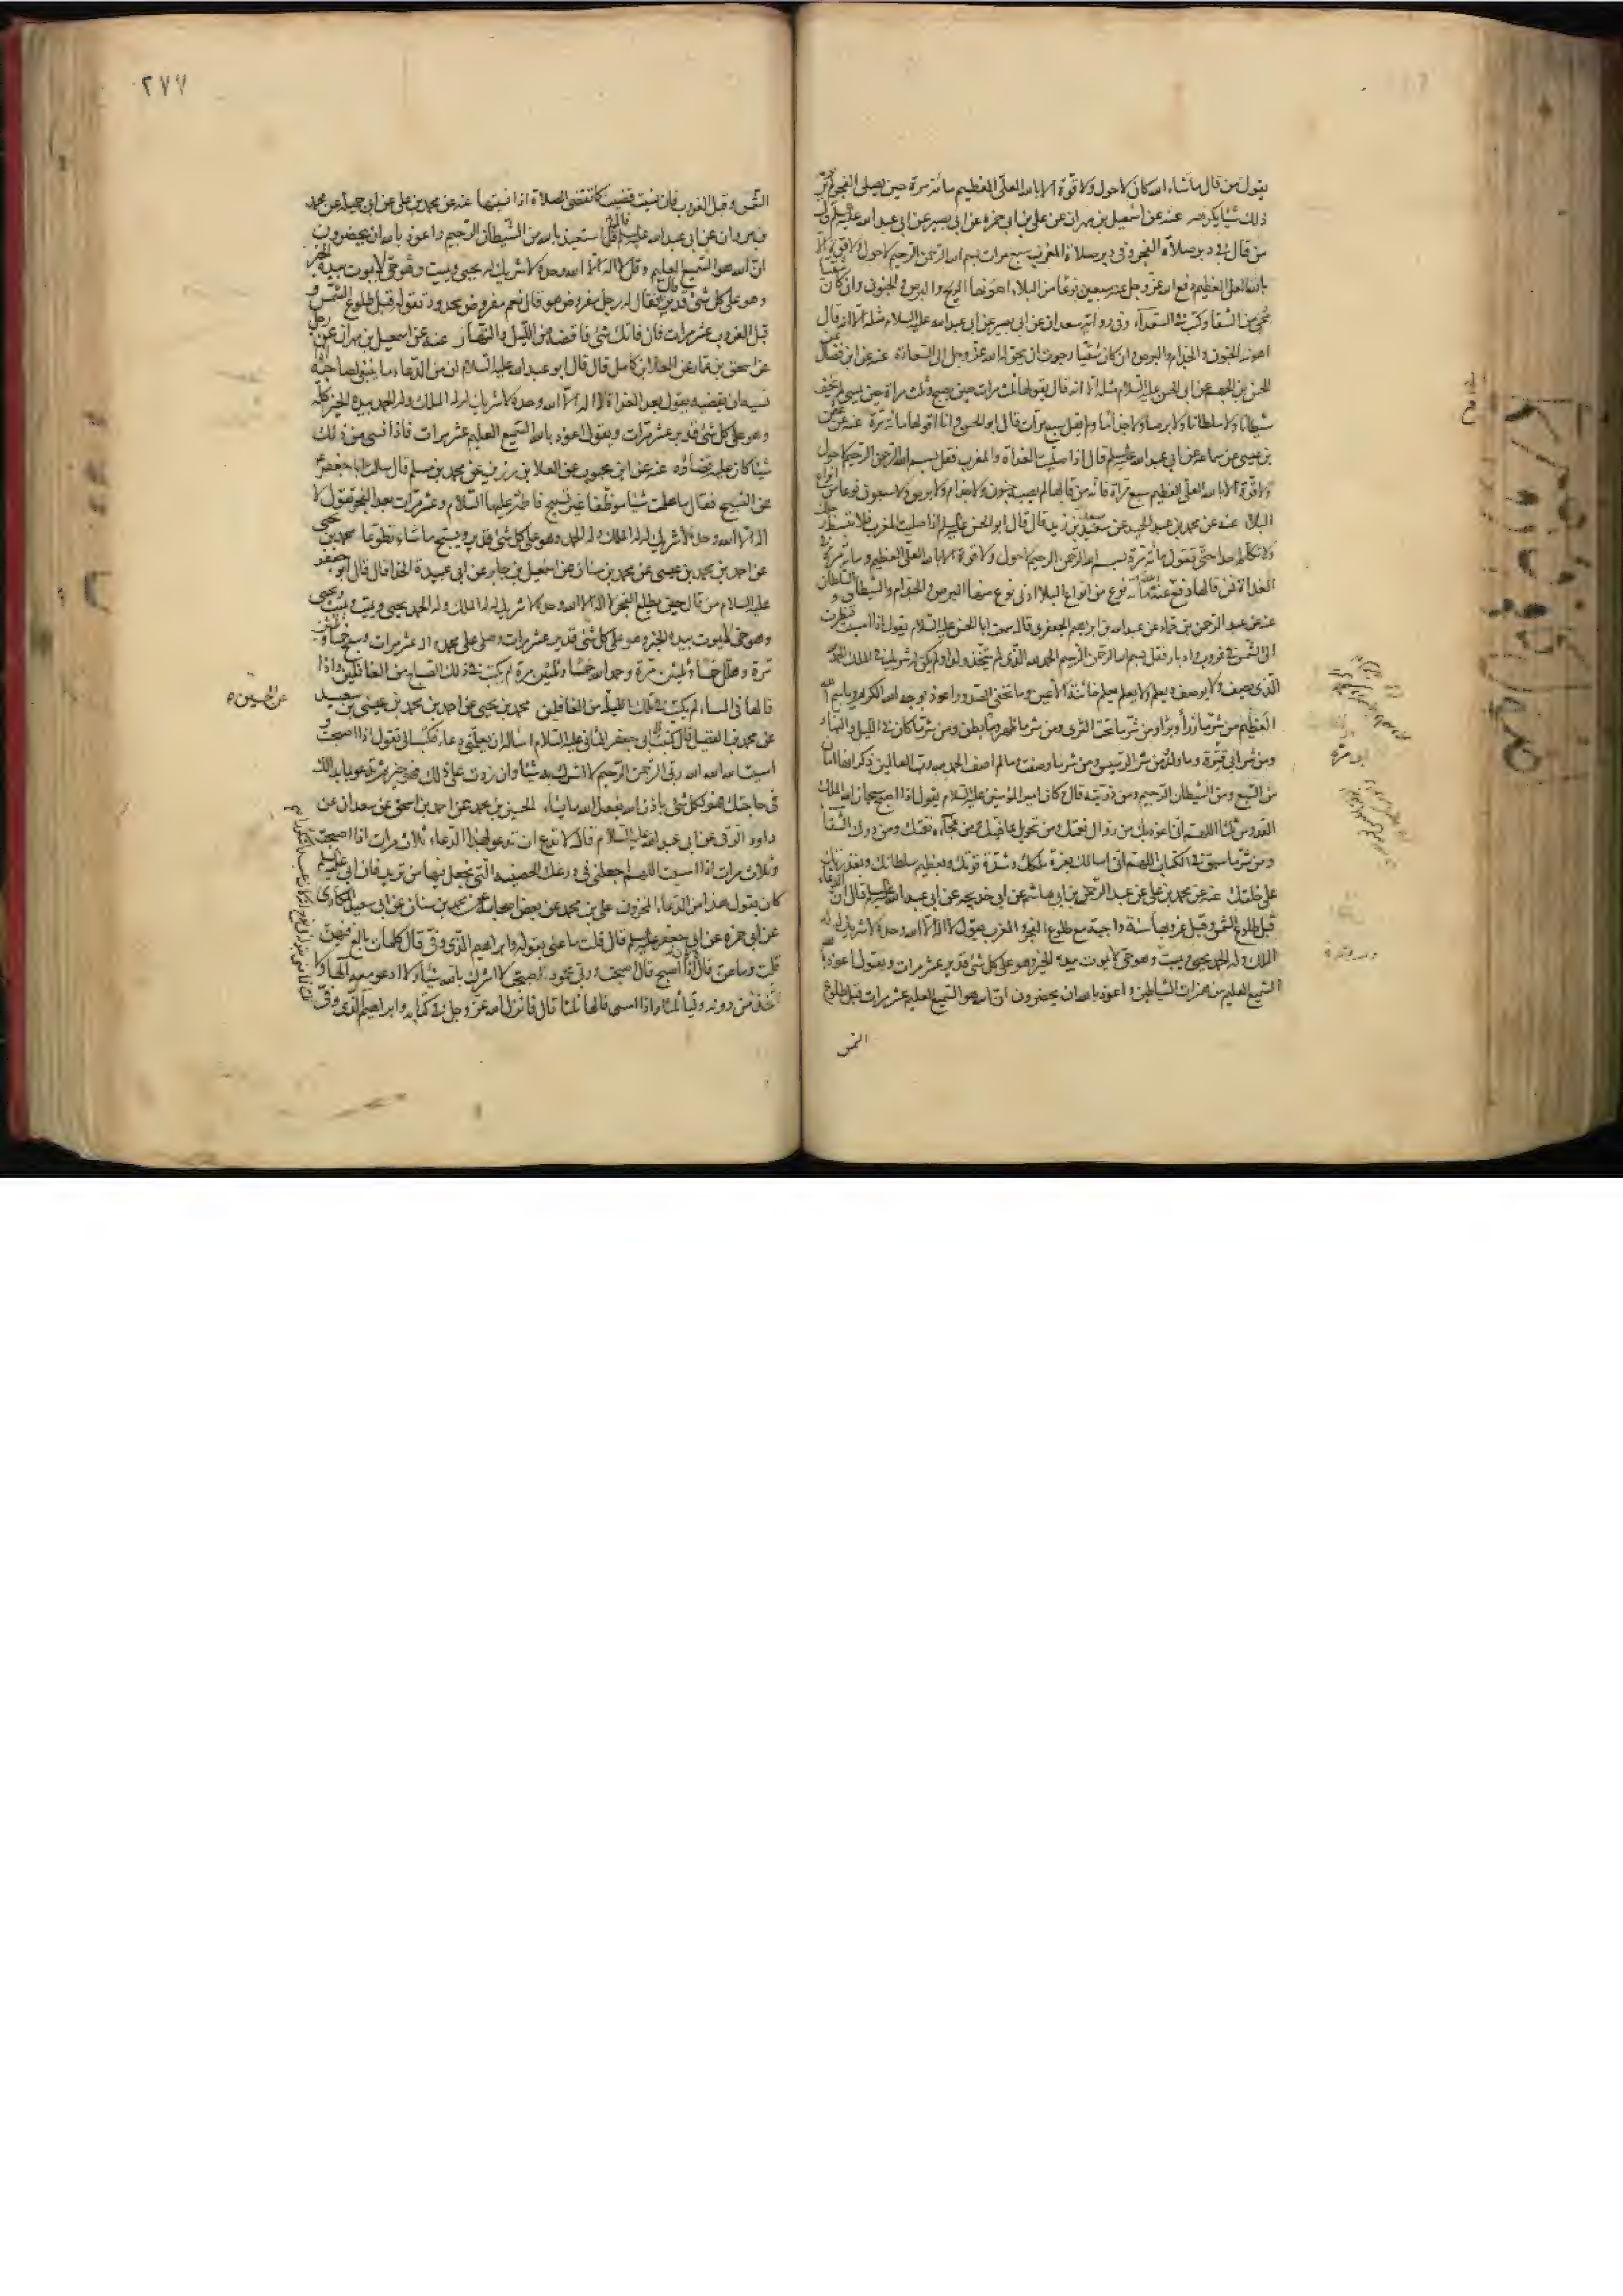 يقول من قال ما شاء الله كان لا حول ولا قوة الا بالله العلي العظيم مائة مرة حين يصلي الفجر لم ير
ذلك شيئا يكرهه عنه عن اسمعيل بن مهران عن علي بن ابي حمزة عن ابي بصير عن ابي عبد الله عليه السلم قال
من قال في دبر صلاة الفجر وفي دبر صلاة المغرب سبع مرات بسم الله الرحمن الرحيم لا حول ولا قوة الا
بالله العلي العظيم دفع الله عز وجل عنه سبعين نوعا من البلاء اهونها الريح والبرص والجنون وان كان
محي من الشقاء وكتب في السعداء وفي رواية سعدان عن ابي بصير عن ابي عبد الله عليه السلام مثله الا انه قال
اهونه الجنون والجذام والبرص وان كان شقيا رجوت ان يحوله الله عز وجل الى السعادة عنه عن ابن فضال
الحسن بن الجهم عن ابي الحسن عليه السلام مثله الا انه قال يقولها ثلث مرات حين يصبح وثلث مرات حين يمسي لم يخف
شيطانا ولا سلطانا ولا برصا ولا جذاما ولم يقل سبع مرات قال ابو الحسن وانا اقولها مائة مرة عنه عن
بن عيسى عن سماعة عن ابي عبد الله عليه السلم قال اذا صليت الغداة والمغرب فقل بسم الله الرحمن الرحيم لا حول
ولا قوة الا بالله العلي العظيم سبع مرات فانه من قالها لم يصبه جنون ولا جذام ولا برص ولا سبعون نوعا من
البلاء عنه عن محمد بن عبد الحميد عن سعيد بن زيد قال قال ابو الحسن عليه السلم اذا صليت المغرب فلا تبسط رجلك
ولا تكلم احدا حتى تقول مائة مرة بسم الله الرحمن الرحيم لا حول ولا قوة الا بالله العلي العظيم ومائة مرة في
الغداة فمن قالها دفع عنه مائة نوع من انواع البلاء ادنى نوع منها البرص والجذام والشيطان والسلطان
عنه عن عبد الرحمن بن حماد عن عبد الله بن ابراهيم الجعفري قال سمعت ابا الحسن عليه السلام يقول اذا امسيت فنظرت
الى الشمس في غروب وادبار فقل بسم الله الرحمن الرحيم الحمد لله الذي لم يتخذ ولدا ولم يكن له شريك في الملك الحمد لله
الذي يصف ولا يوصف ويعلم ولا يعلم يعلم خائنة الاعين وما تخفي الصدور اعوذ بوجه الله الكريم وباسم الله
العظيم من شر ما ذرأ وبرأ ومن شر ما تحت الثرى ومن شر ما ظهر وما بطن ومن شر ما كان في الليل والنهار
ومن شر ابي قترة وما ولد ومن شر الرسيس ومن شر ما وصفت وما لم اصف الحمد لله رب العالمين ذكر انها امان
من السبع ومن الشيطان الرجيم ومن ذريته قال كان امير المؤمنين عليه السلام يقول اذا اصبح سبحان الله الملك
القدوس ثلثا اللهم اني اعوذ بك من زوال نعمتك ومن تحويل عافيتك ومن فجاءة نقمتك ومن درك الشقاء
ومن شر ما سبق في الكتاب اللهم اني اسالك بعزة ملكك وشدة قوتك وبعظيم سلطانك وبقدرتك
على خلقك عنه عن محمد بن علي عن عبد الرحمن بن ابي هاشم عن ابي خديجة عن ابي عبد الله عليه السلم قال ان الدعاء
قبل طلوع الشمس وقبل غروبها سنة واجبة مع طلوع الفجر والمغرب يقول لا اله الا الله وحده لا شريك له له
الملك وله الحمد يحيي ويميت وهو حي لا يموت بيده الخير وهو على كل شئ قدير عشر مرات ويقول اعوذ بالله
السميع العليم من همزات الشياطين واعوذ بالله ان يحضرون ان الله هو السميع العليم عشر مرات قبل طلوع
الشمس
ابو مرة
٢٧٧
الشمس وقبل الغروب فان نسيت قضيت كما تقضي الصلاة اذا نسيتها عنه عن محمد بن علي عن ابي جميلة عن محمد
بن مروان عن ابي عبد الله عليه السلم قال قل استعيذ بالله من الشيطان الرجيم واعوذ بالله ان يحضرون
ان الله هو السميع العليم وقل لا اله الا الله وحده لا شريك له يحيي ويميت وهو حي لا يموت بيده الخير
وهو على كل شئ قدير قال فقال له رجل مفروض هو قال نعم مفروض محدود تقوله قبل طلوع الشمس و
قبل الغروب عشر مرات فان فاتك شئ فاقضه من الليل والنهار عنه عن اسمعيل بن مهران عن رجل
عن اسحق بن عمار عن العلاء بن كامل قال قال ابو عبد الله عليه السلام ان من الدعاء ما ينبغي لصاحبه اذا
نسيه ان يقضيه يقول بعد الغداة لا اله الا الله وحده لا شريك له له الملك وله الحمد بيده الخير كله
وهو على كل شئ قدير عشر مرات ويقول اعوذ بالله السميع العليم عشر مرات فاذا نسي من ذلك
شيئا كان عليه قضاؤه عنه عن ابن محبوب عن العلا بن رزين عن محمد بن مسلم قال سالت ابا جعفر ع
عن التسبيح فقال ما علمت شيئا موظفا غير تسبيح فاطمة عليها السلام وعشر مرات بعد الفجر تقول لا
اله الا الله وحده لا شريك له له الملك وله الحمد وهو على كل شئ قدير ويسبح ما شاء تطوعا محمد بن يحيى
عن احمد بن محمد بن عيسى عن محمد بن سنان عن اسمعيل بن جابر عن ابي عبيدة الحذا قال قال ابو جعفر
عليه السلام من قال حين يطلع الفجر لا اله الا الله وحده لا شريك له له الملك وله الحمد يحيي ويميت ويميت ويحيي
وهو حي لا يموت بيده الخير وهو على كل شئ قدير عشر مرات وصلى على محمد واله عشر مرات وسبح خمسا وثلثين
مرة وهلل خمسا وثلثين مرة وحمد الله خمسا وثلثين مرة لم يكتب في ذلك الصباح من الغافلين واذا
قالها في المساء لم يكتب في تلك الليلة من الغافلين محمد بن يحيى عن احمد بن محمد بن عيسى عن
عن محمد بن الفضيل قال كتبت الى ابي جعفر الثاني عليه السلام اساله ان يعلمني دعاء فكتب الي تقول اذا اصبحت و
امسيت الله الله الله ربي الرحمن الرحيم لا اشرك به شيئا وان زدت على ذلك فهو خير ثم تدعو بما بدا لك
في حاجتك فهو لكل شئ باذن الله يفعل الله ما يشاء الحسين بن محمد عن احمد بن اسحق عن سعدان عن
داود الرقي عن ابي عبد الله عليه السلام قال لا تدع ان تدعو بهذا الدعاء ثلاث مرات اذا اصبحت
وثلاث مرات اذا امسيت اللهم اجعلني في درعك الحصينة التي تجعل فيها من تريد فان ابي عليه السلم
كان يقول هذا من الدعاء المخزون علي بن محمد عن بعض اصحابه عن محمد بن سنان عن ابي سعيد المكاري
عن ابي حمزة عن ابي جعفر عليه السلم قال قلت ما عنى بقوله وابراهيم الذي وفى قال كلمات بالغ فيهن
قلت وما هن قال كان اذا اصبح قال اصبحت وربي محمود اصبحت لا اشرك بالله شيئا ولا ادعو معه الها ولا
اتخذ من دونه وليا ثلثا واذا امسى قالها ثلثا قال فانزل الله عز وجل في كتابه وابراهيم الذي وفى
عن الحسين